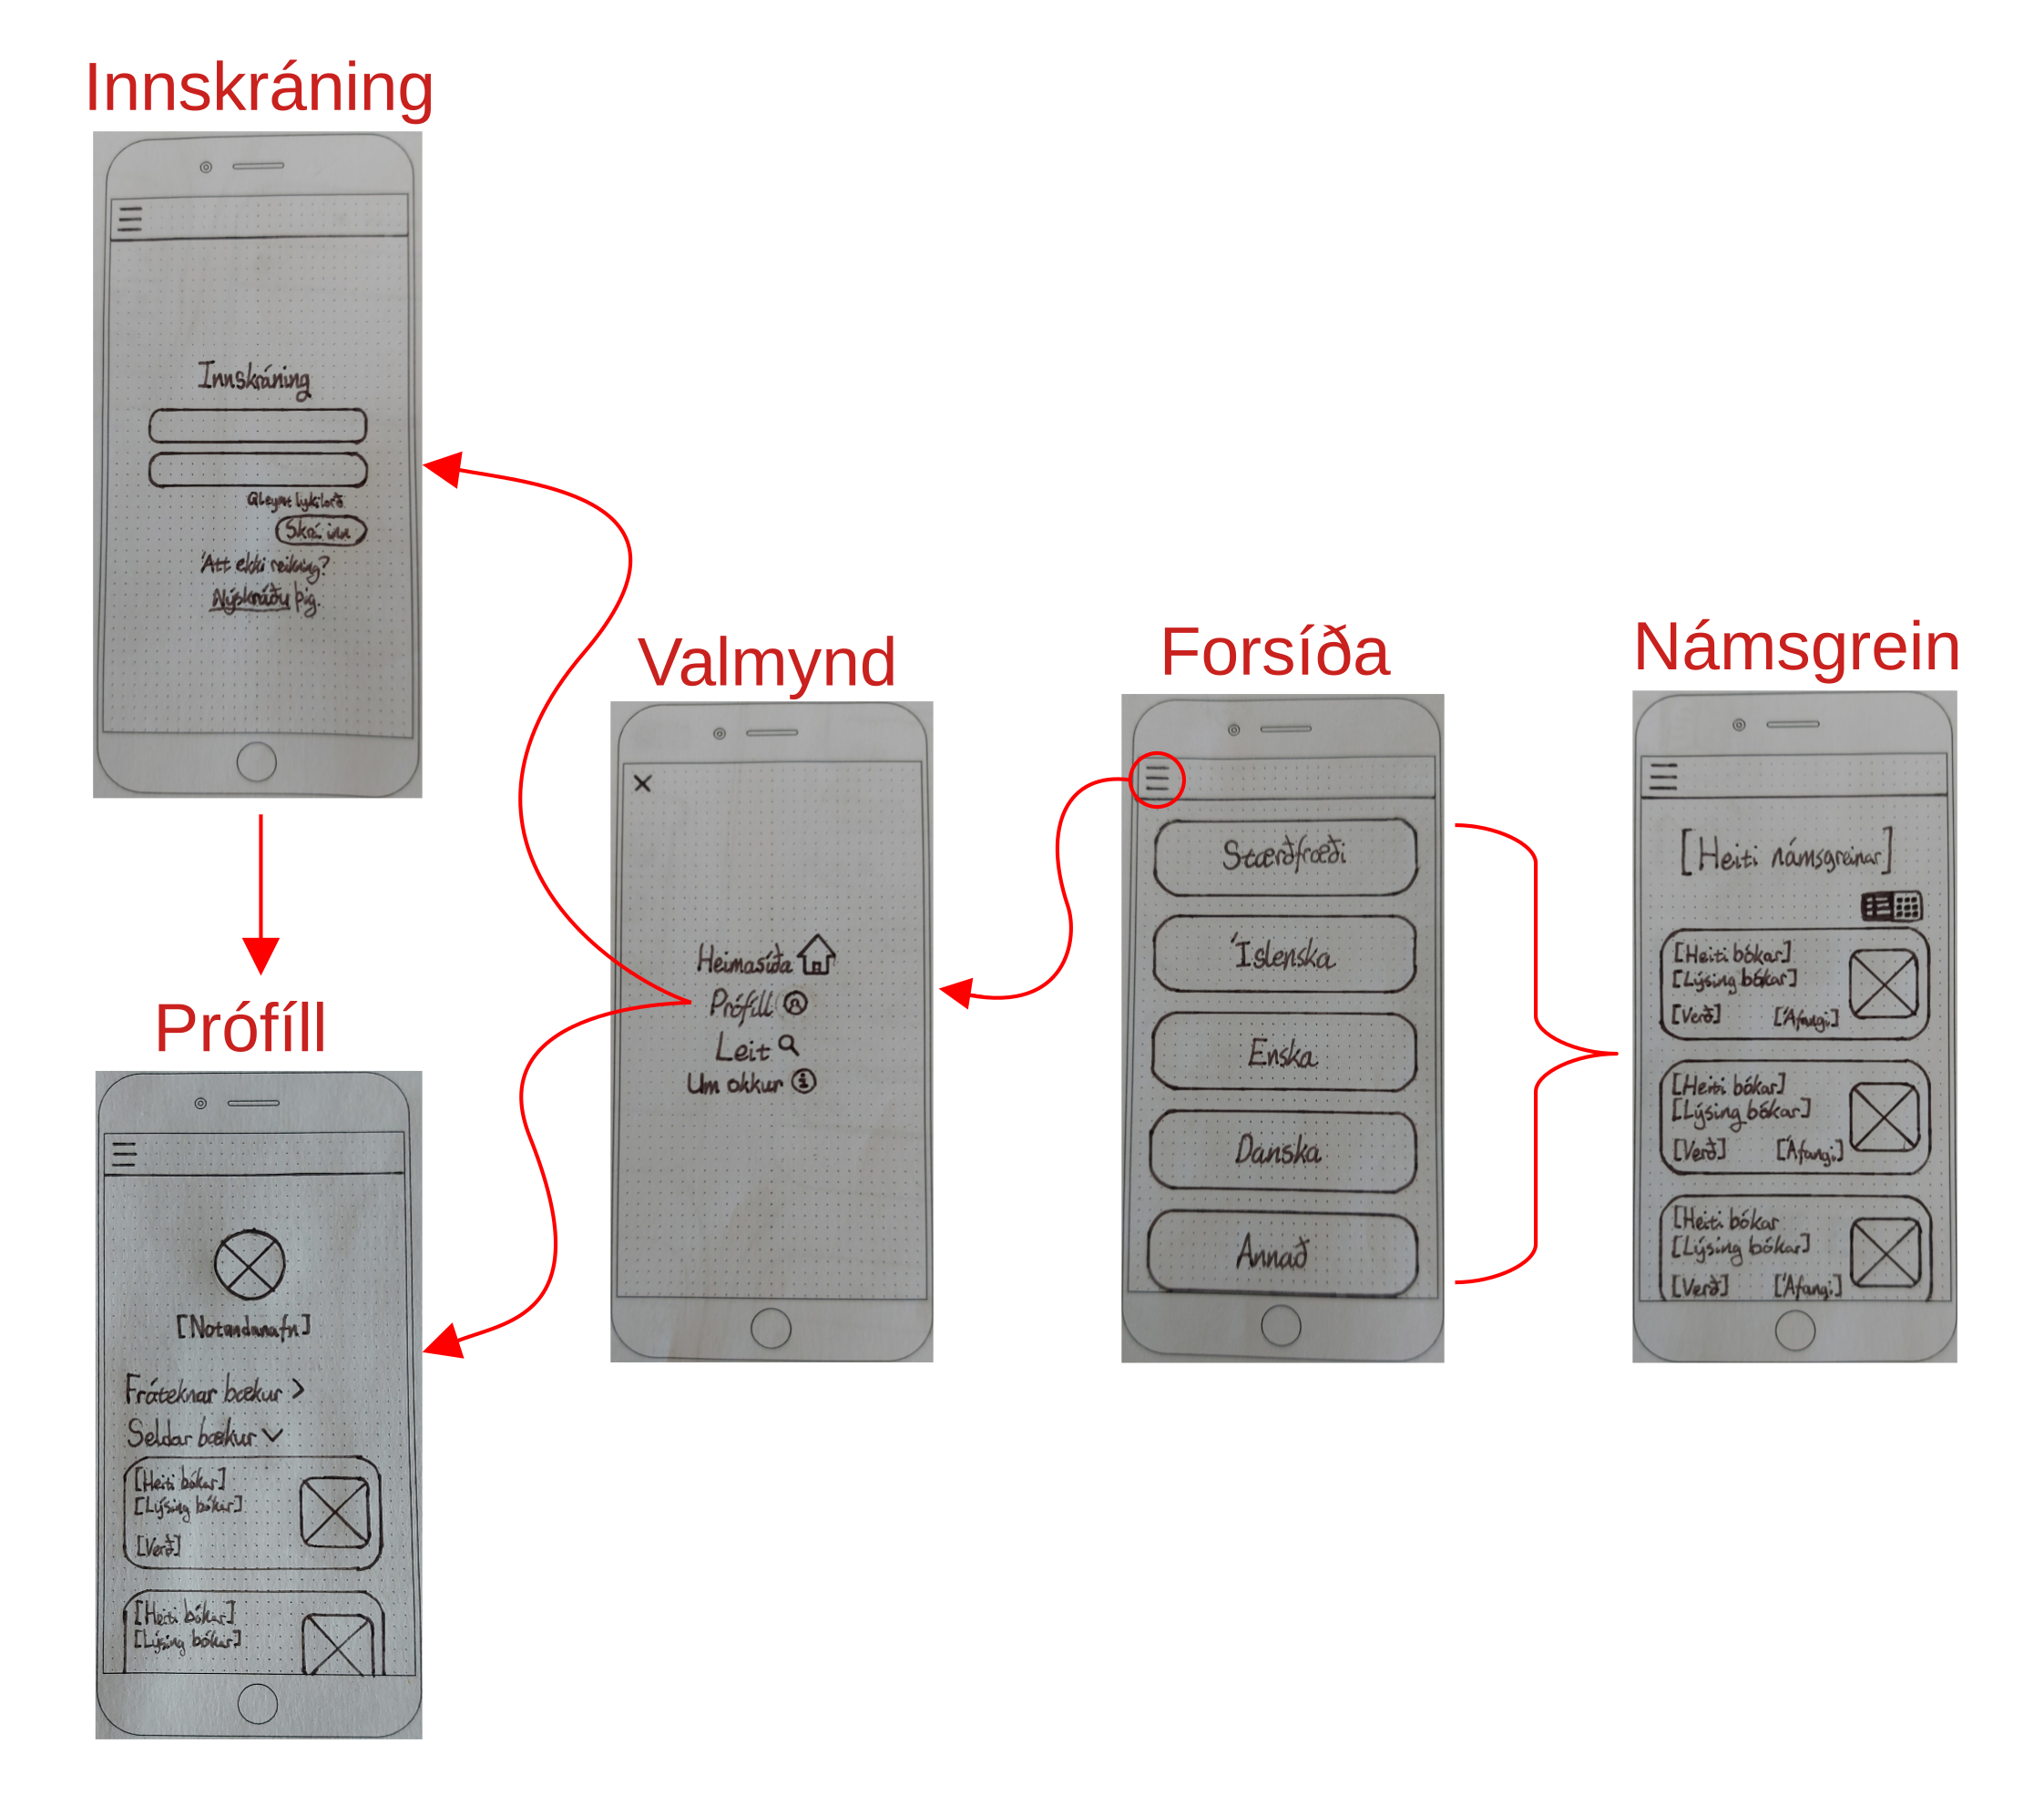 Innskráning
Innskráning
Gleymt lykilorð
Skrá inn
Átt ekki reikning?
Nýskráðu þig.
Prófíll
[Notandanafn]
Fráteknar bækur >
Seldar bækur
[Heiti bókar]
[Lýsing bókar]
[Verð]
[Heiti bókar]
[Lýsing bókar]
Valmynd
Heimasíða
Prófíll
Leit
Um okkur
Forsíða
Stærðfræði
Íslenska
Enska
Danska
Annað
Námsgrein
[Heiti námsgreinar]
[Heiti bókar]
[Lýsing bókar]
[Verð] [Áfangi]
[Heiti bókar]
[Lýsing bókar]
[Verð] [Áfangi]
[Heiti bókar
[Lýsing bókar]
[Verð] [Áfangi]